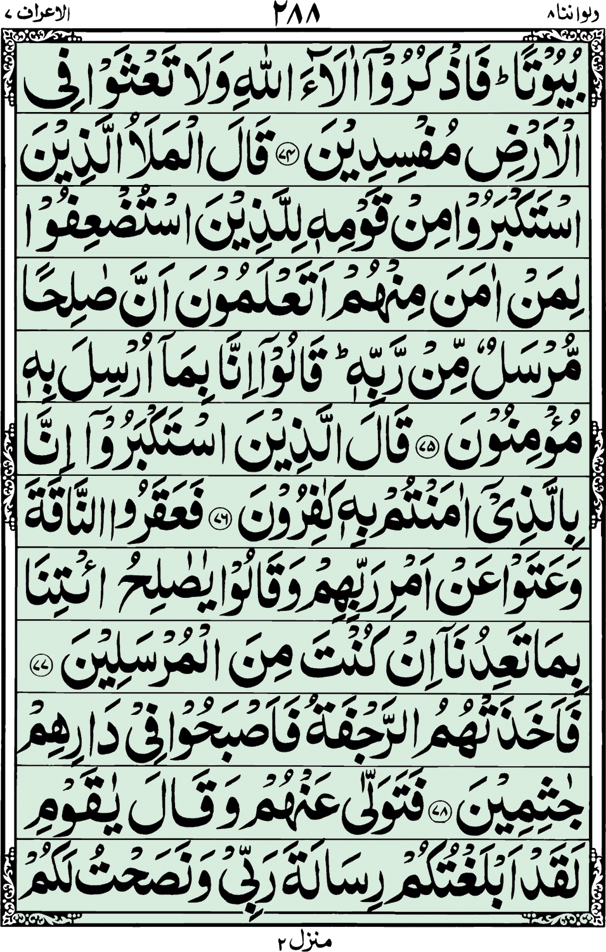 ولواننا ٨ ٢٨٨ الاعراف ٧
بُيُوْتًا ۚ فَاذْكُرُوْۤا اٰلَآءَ اللّٰهِ وَلَا تَعْثَوْا فِی
الْاَرْضِ مُفْسِدِيْنَ ﴿۷۴﴾ قَالَ الْمَلَاُ الَّذِيْنَ
اسْتَكْبَرُوْا مِنْ قَوْمِهٖ لِلَّذِيْنَ اسْتُضْعِفُوْا
لِمَنْ اٰمَنَ مِنْهُمْ اَتَعْلَمُوْنَ اَنَّ صٰلِحًا
مُّرْسَلٌ مِّنْ رَّبِّهٖ ؕ قَالُوْۤا اِنَّا بِمَاۤ اُرْسِلَ بِهٖ
مُؤْمِنُوْنَ ﴿۷۵﴾ قَالَ الَّذِيْنَ اسْتَكْبَرُوْۤا اِنَّا
بِالَّذِیْۤ اٰمَنْتُمْ بِهٖ كٰفِرُوْنَ ﴿۷۶﴾ فَعَقَرُوا النَّاقَةَ
وَعَتَوْا عَنْ اَمْرِ رَبِّهِمْ وَقَالُوْا يٰصٰلِحُ ائْتِنَا
بِمَا تَعِدُنَاۤ اِنْ كُنْتَ مِنَ الْمُرْسَلِيْنَ ﴿۷۷﴾
فَاَخَذَتْهُمُ الرَّجْفَةُ فَاَصْبَحُوْا فِیْ دَارِهِمْ
جٰثِمِيْنَ ﴿۷۸﴾ فَتَوَلّٰی عَنْهُمْ وَقَالَ يٰقَوْمِ
لَقَدْ اَبْلَغْتُكُمْ رِسَالَةَ رَبِّیْ وَنَصَحْتُ لَكُمْ
منزل ٢